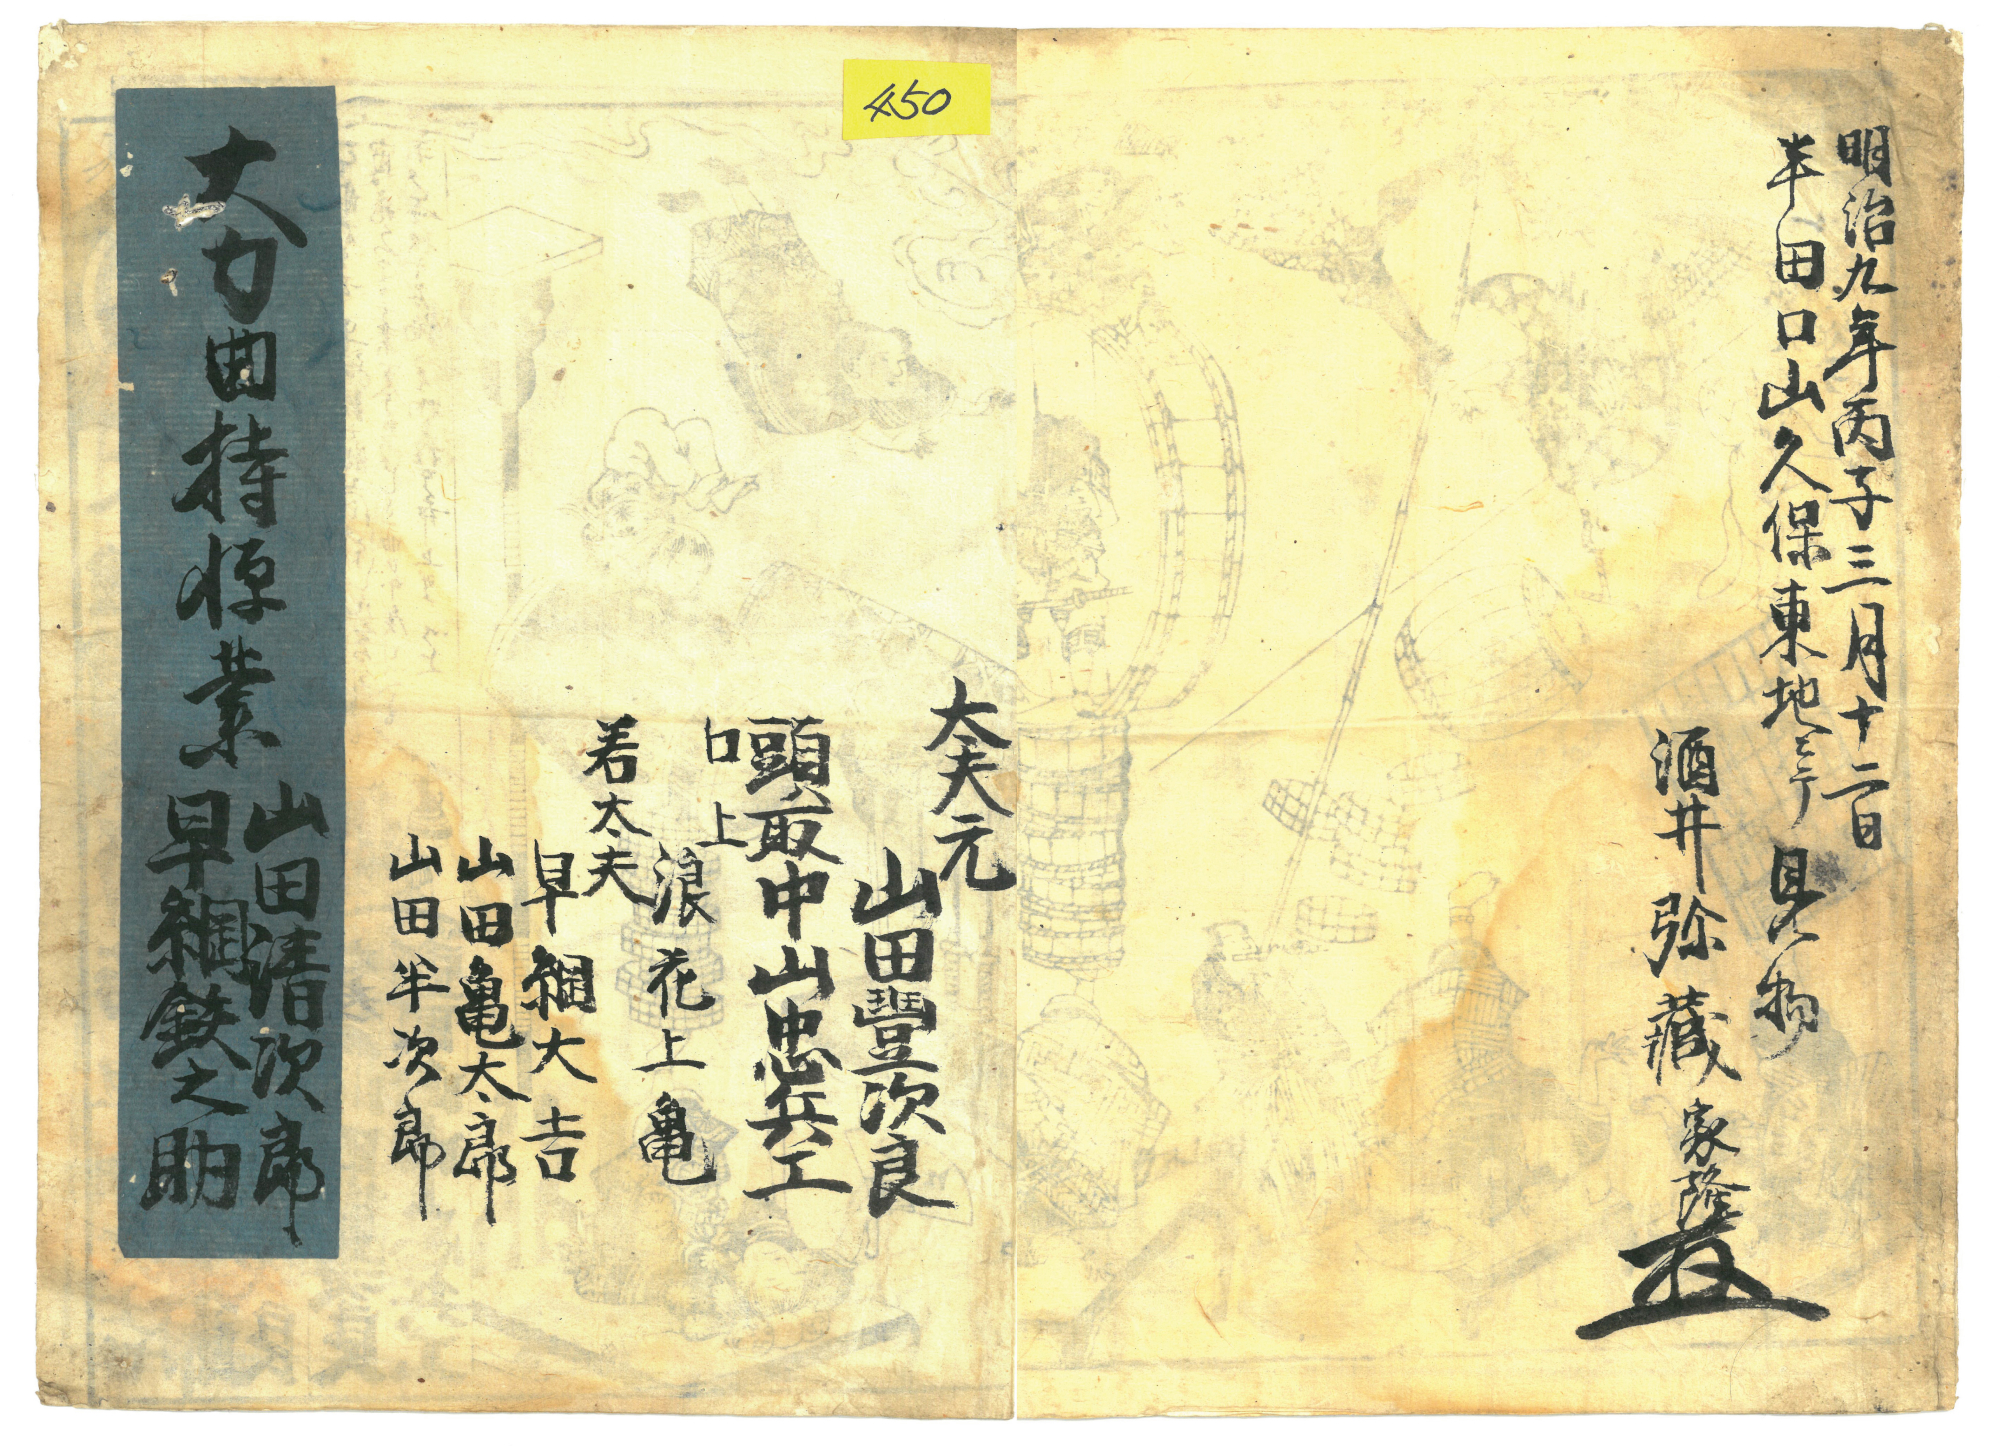 明治九年丙子三月十二日
半田口山久保東地ニテ見物
酒井弥蔵家隆
太夫元
山田豊次良
頭取中山忠兵エ
口上
浪花上亀
若太夫
早綱大吉
山田亀太郎
山田半次郎
大力曲持
業
山田清次郎
早綱鉄之助
450